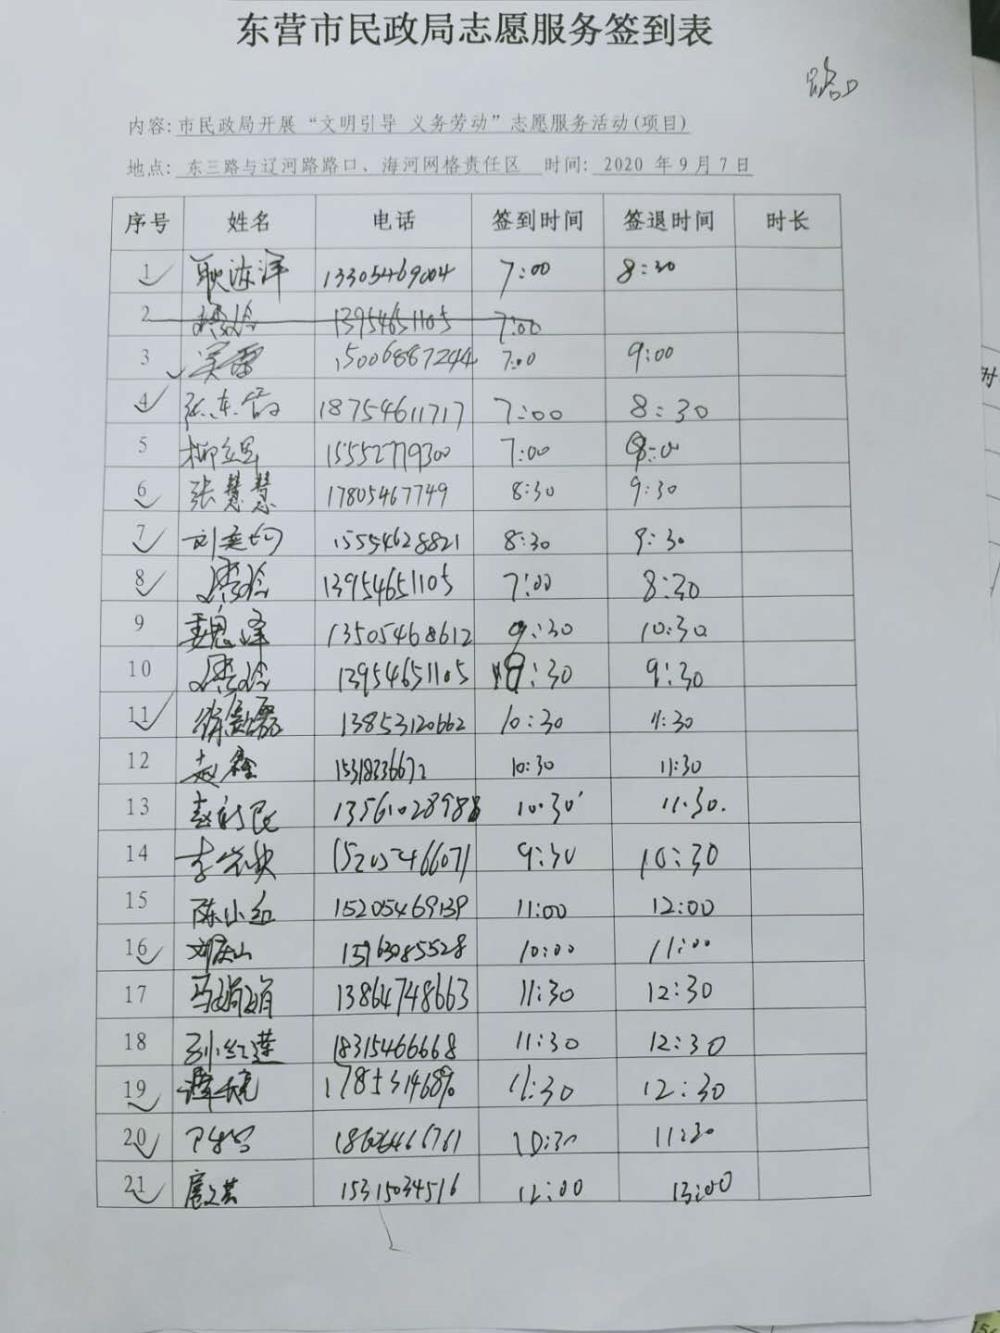 东营市民政局志愿服务签到表
路口
内容: 市民政局开展“文明引导 义务劳动”志愿服务活动(项目)
地点: 东三路与辽河路路口、海河网格责任区 时间: 2020 年 9 月 7 日
序号 姓名 电话 签到时间 签退时间 时长
1 耿海洋 13305469004 7:00 8:30
2 13954651105 7:00
3 吴雷 15006887244 7:00 9:00
4 18754611717 7:00 8:30
5 15552779300 7:00
6 张慧慧 17805467749 8:30 9:30
7 15554628821 8:30 9:30
8 13954651105 7:00 8:30
9 魏泽 13505468612 9:30 10:30
10 13954651105 8:30 9:30
11 13853120662 10:30 11:30
12 赵鑫 15318236672 10:30 11:30
13 赵新民 1356102898 10:30 11:30
14 15205466071 9:30 10:30
15 陈小红 15205469139 11:00 12:00
16 刘庆山 15163085528 10:00 11:00
17 马娟娟 13864748663 11:30 12:30
18 孙红莲 18315466668 11:30 12:30
19 11:30 12:30
20 10:30 11:30
21 15315034516 12:00 13:00